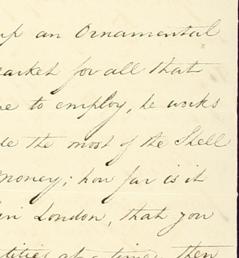 up an Ornamental
market for all that
me to employ, he works
de the most of the Shell
money; how far is it
in London, that you
tities at a time, then